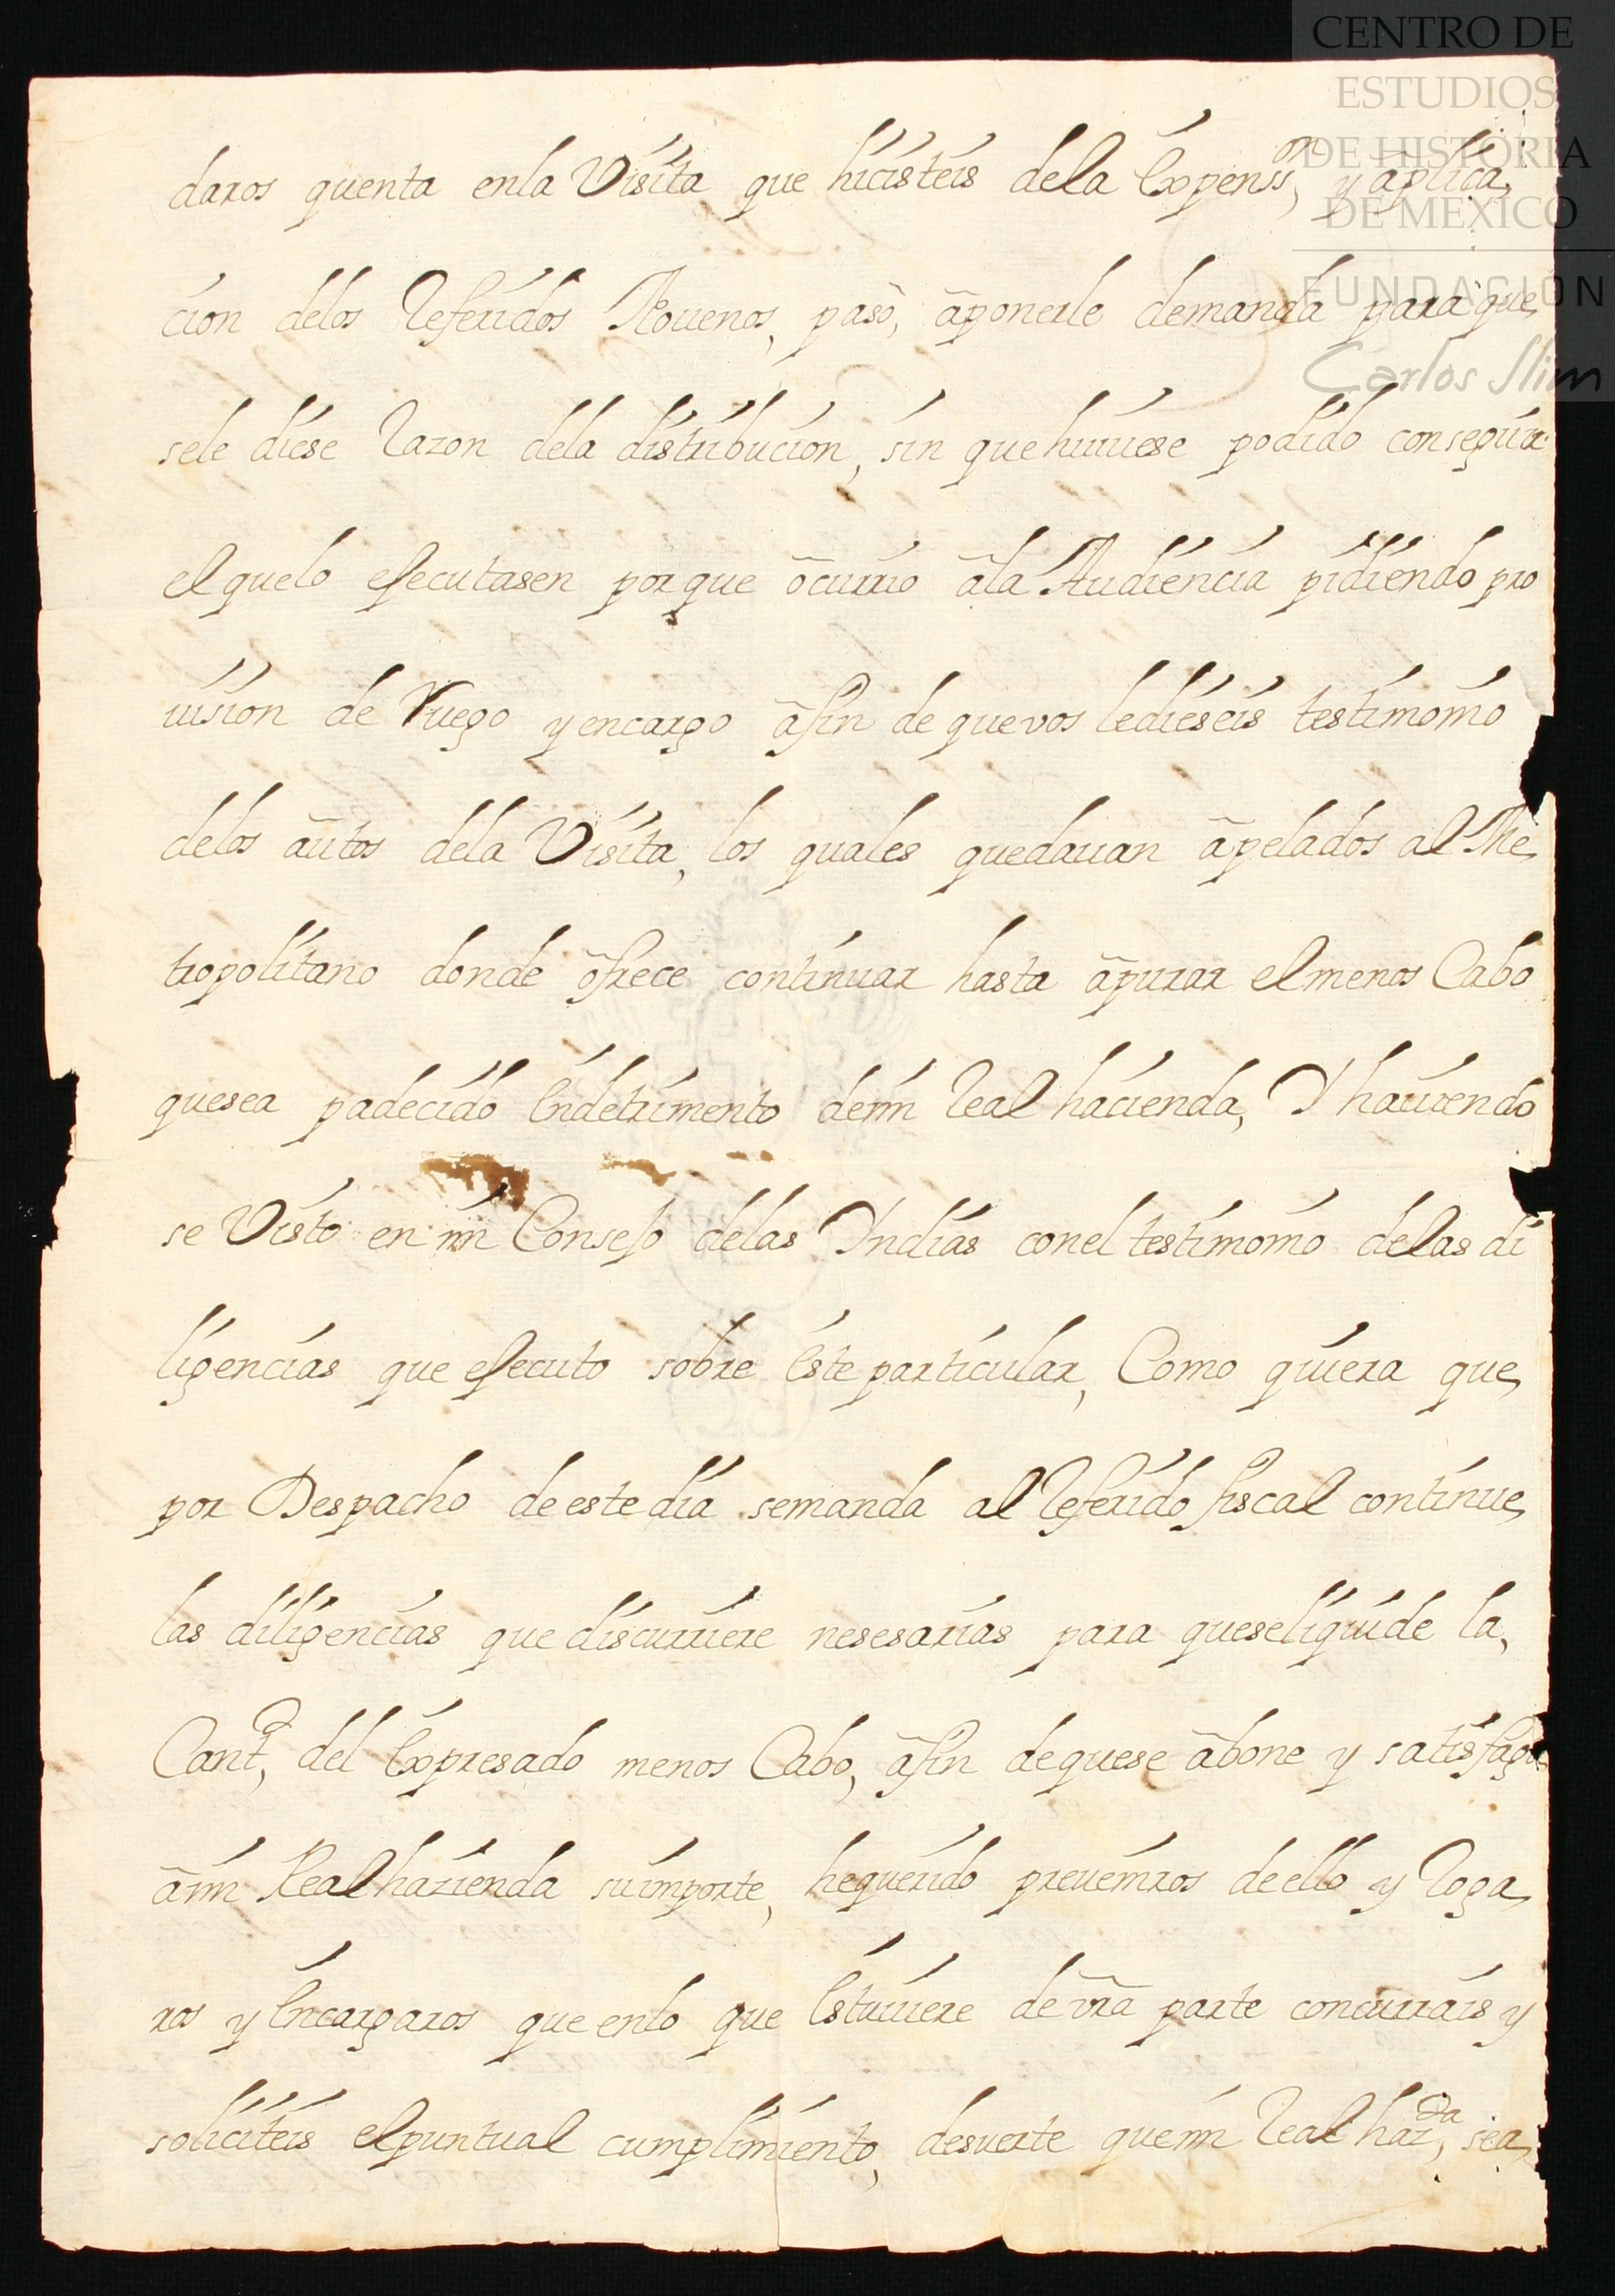 CENTRO DE
ESTUDIOS
DE HISTORIA
DE MEXICO
FUNDACIÓN
Carlos Slim
daros quenta enla Visita que hicisteis dela Expenson, y aplica,
cion delos Referidos Nouenos, pasò, ãponerle demanda para que,
sele diese Razon dela distribucion, sin que huuiese podido conseguir
el quelo efecutasen por que õcurrio ãla Audiencia pidiendo pro
uision de Ruego y encargo ãfin de que vos ledieseis testimonio
delos aũtos dela Visita, los quales quedauan ãpelados al Me,
tropolitano donde õfrece continuar hasta ãpurar el menos Cabo
quesea padecido Endetrimento demi Real hacienda, Y hauiendo
se Visto en mi Consejo delas Yndias conel testimonio delas di
ligencias que efecuto sobre Este particular, Como quiera que,
por Despacho de este dia semanda al Referido fiscal continue,
las diligencias que discurriere nesesarias para queseliquide la,
Cantd, del Expresado menos Cabo, ãfin dequese ãbone y satisfaga
ãmi Real hazienda suimporte, hequerido preueniros deello y Roga,
ros y Encargaros que enlo que Estuuiere de vr̃a parte concurrais y
soliciteis elpuntual cumplimiento, desuerte quemi Real hazda, sea,